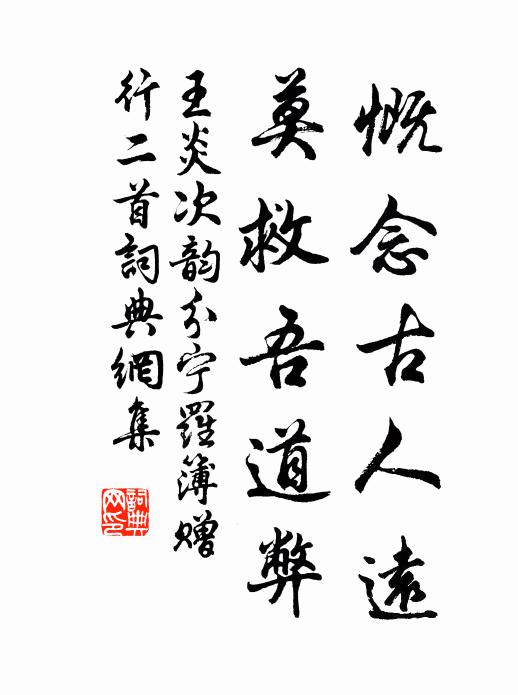 慨念古人遠
莫救吾道弊
王炎次韵分宁羅簿赠
行二首詞典網集
詞典网印